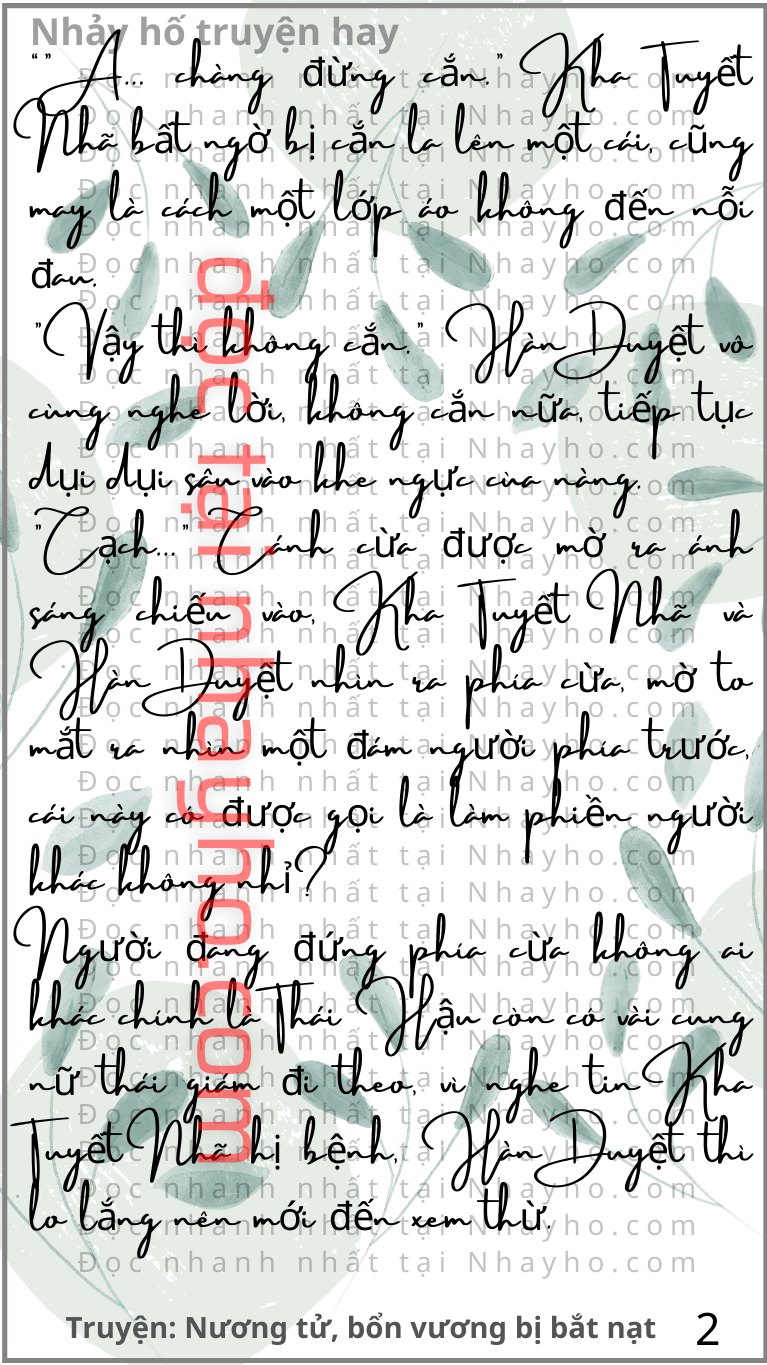 Nhảy hố truyện hay
“ ” A... chàng đừng cắn.” Kha Tuyết
Nhã bất ngờ bị cắn la lên một cái, cũng
may là cách một lớp áo không đến nỗi
đau.
”Vậy thì không cắn.” Hàn Duyệt vô
cùng nghe lời, không cắn nữa, tiếp tục
dụi dụi sâu vào khe ngực của nàng.
”Cạch...” Cánh cửa được mở ra ánh
sáng chiếu vào, Kha Tuyết Nhã và
Hàn Duyệt nhìn ra phía cửa, mở to
mắt ra nhìn một đám người phía trước,
cái này có được gọi là làm phiền người
khác không nhỉ?
Người đang đứng phía cửa không ai
khác chính là Thái Hậu còn có vài cung
nữ thái giám đi theo, vì nghe tin Kha
Tuyết Nhã bị bệnh, Hàn Duyệt thì
lo lắng nên mới đến xem thử.
đọc tại nhayho.com
Đọc nhanh nhất tại Nhayho.com
Truyện: Nương tử, bổn vương bị bắt nạt
2